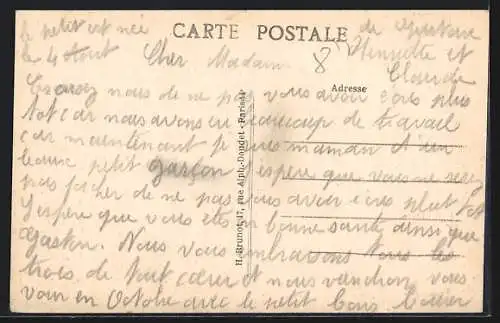 le petit est née
le 4 Aout
CARTE POSTALE
de Gustave
Henriette et
Claude
Cher Madam
Adresse
nous de ne pas vous avoir écris plus
tot car nous avons eu beaucoup de travail
car maintenant je suis maman d'un
beau petit garçon j'espere que vous ne serez
pas facher de ne pas vous avoir écris plut tot
J'espere que vous etes en bonne santé ainsi que
Gaston. Nous vous embrassons tous les
trois de tout cœur et nous viendrons vous
voir en Octobre avec le petit
H. Brunot, 17, rue Alph.-Daudet - Paris